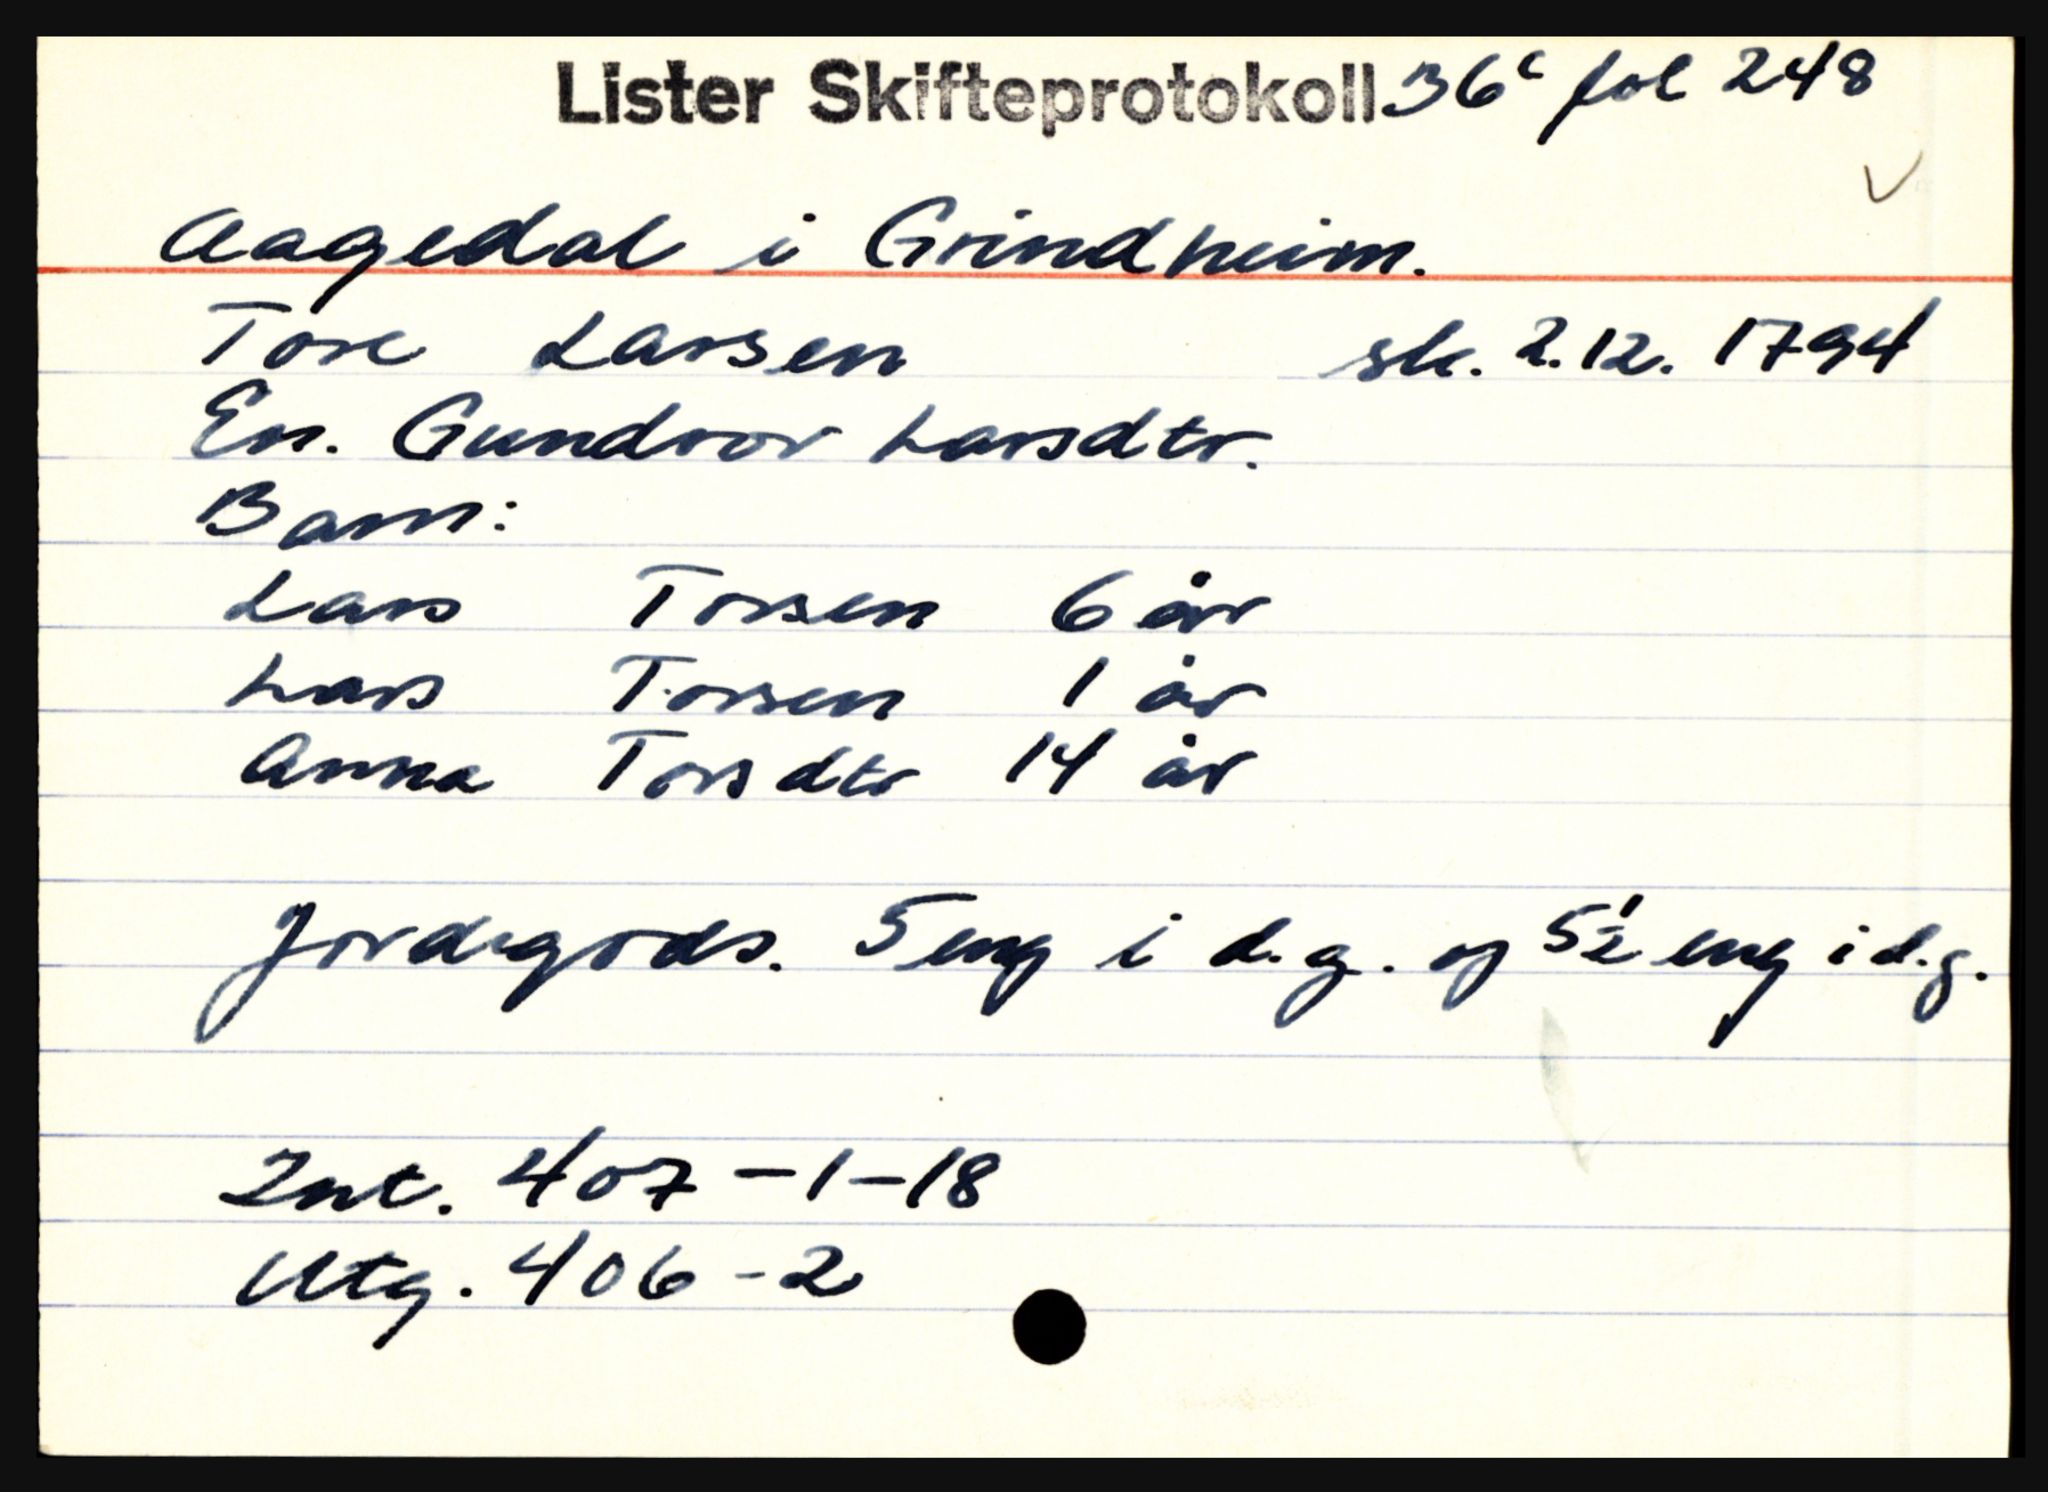 Lister Skifteprotokoll 36c fol 248
Aagedal i Grindheim.
Tore Larsen sk. 2.12. 1794
En. Gundvor Larsdtr.
Barn:
Lars Torsen 6 år
Lars Torsen 1 år
Anna Torsdtr 14 år
Jordegods. 5 eng i d.g. og 5½ eng i d.g.
Int. 407-1-18
Utg. 406-2